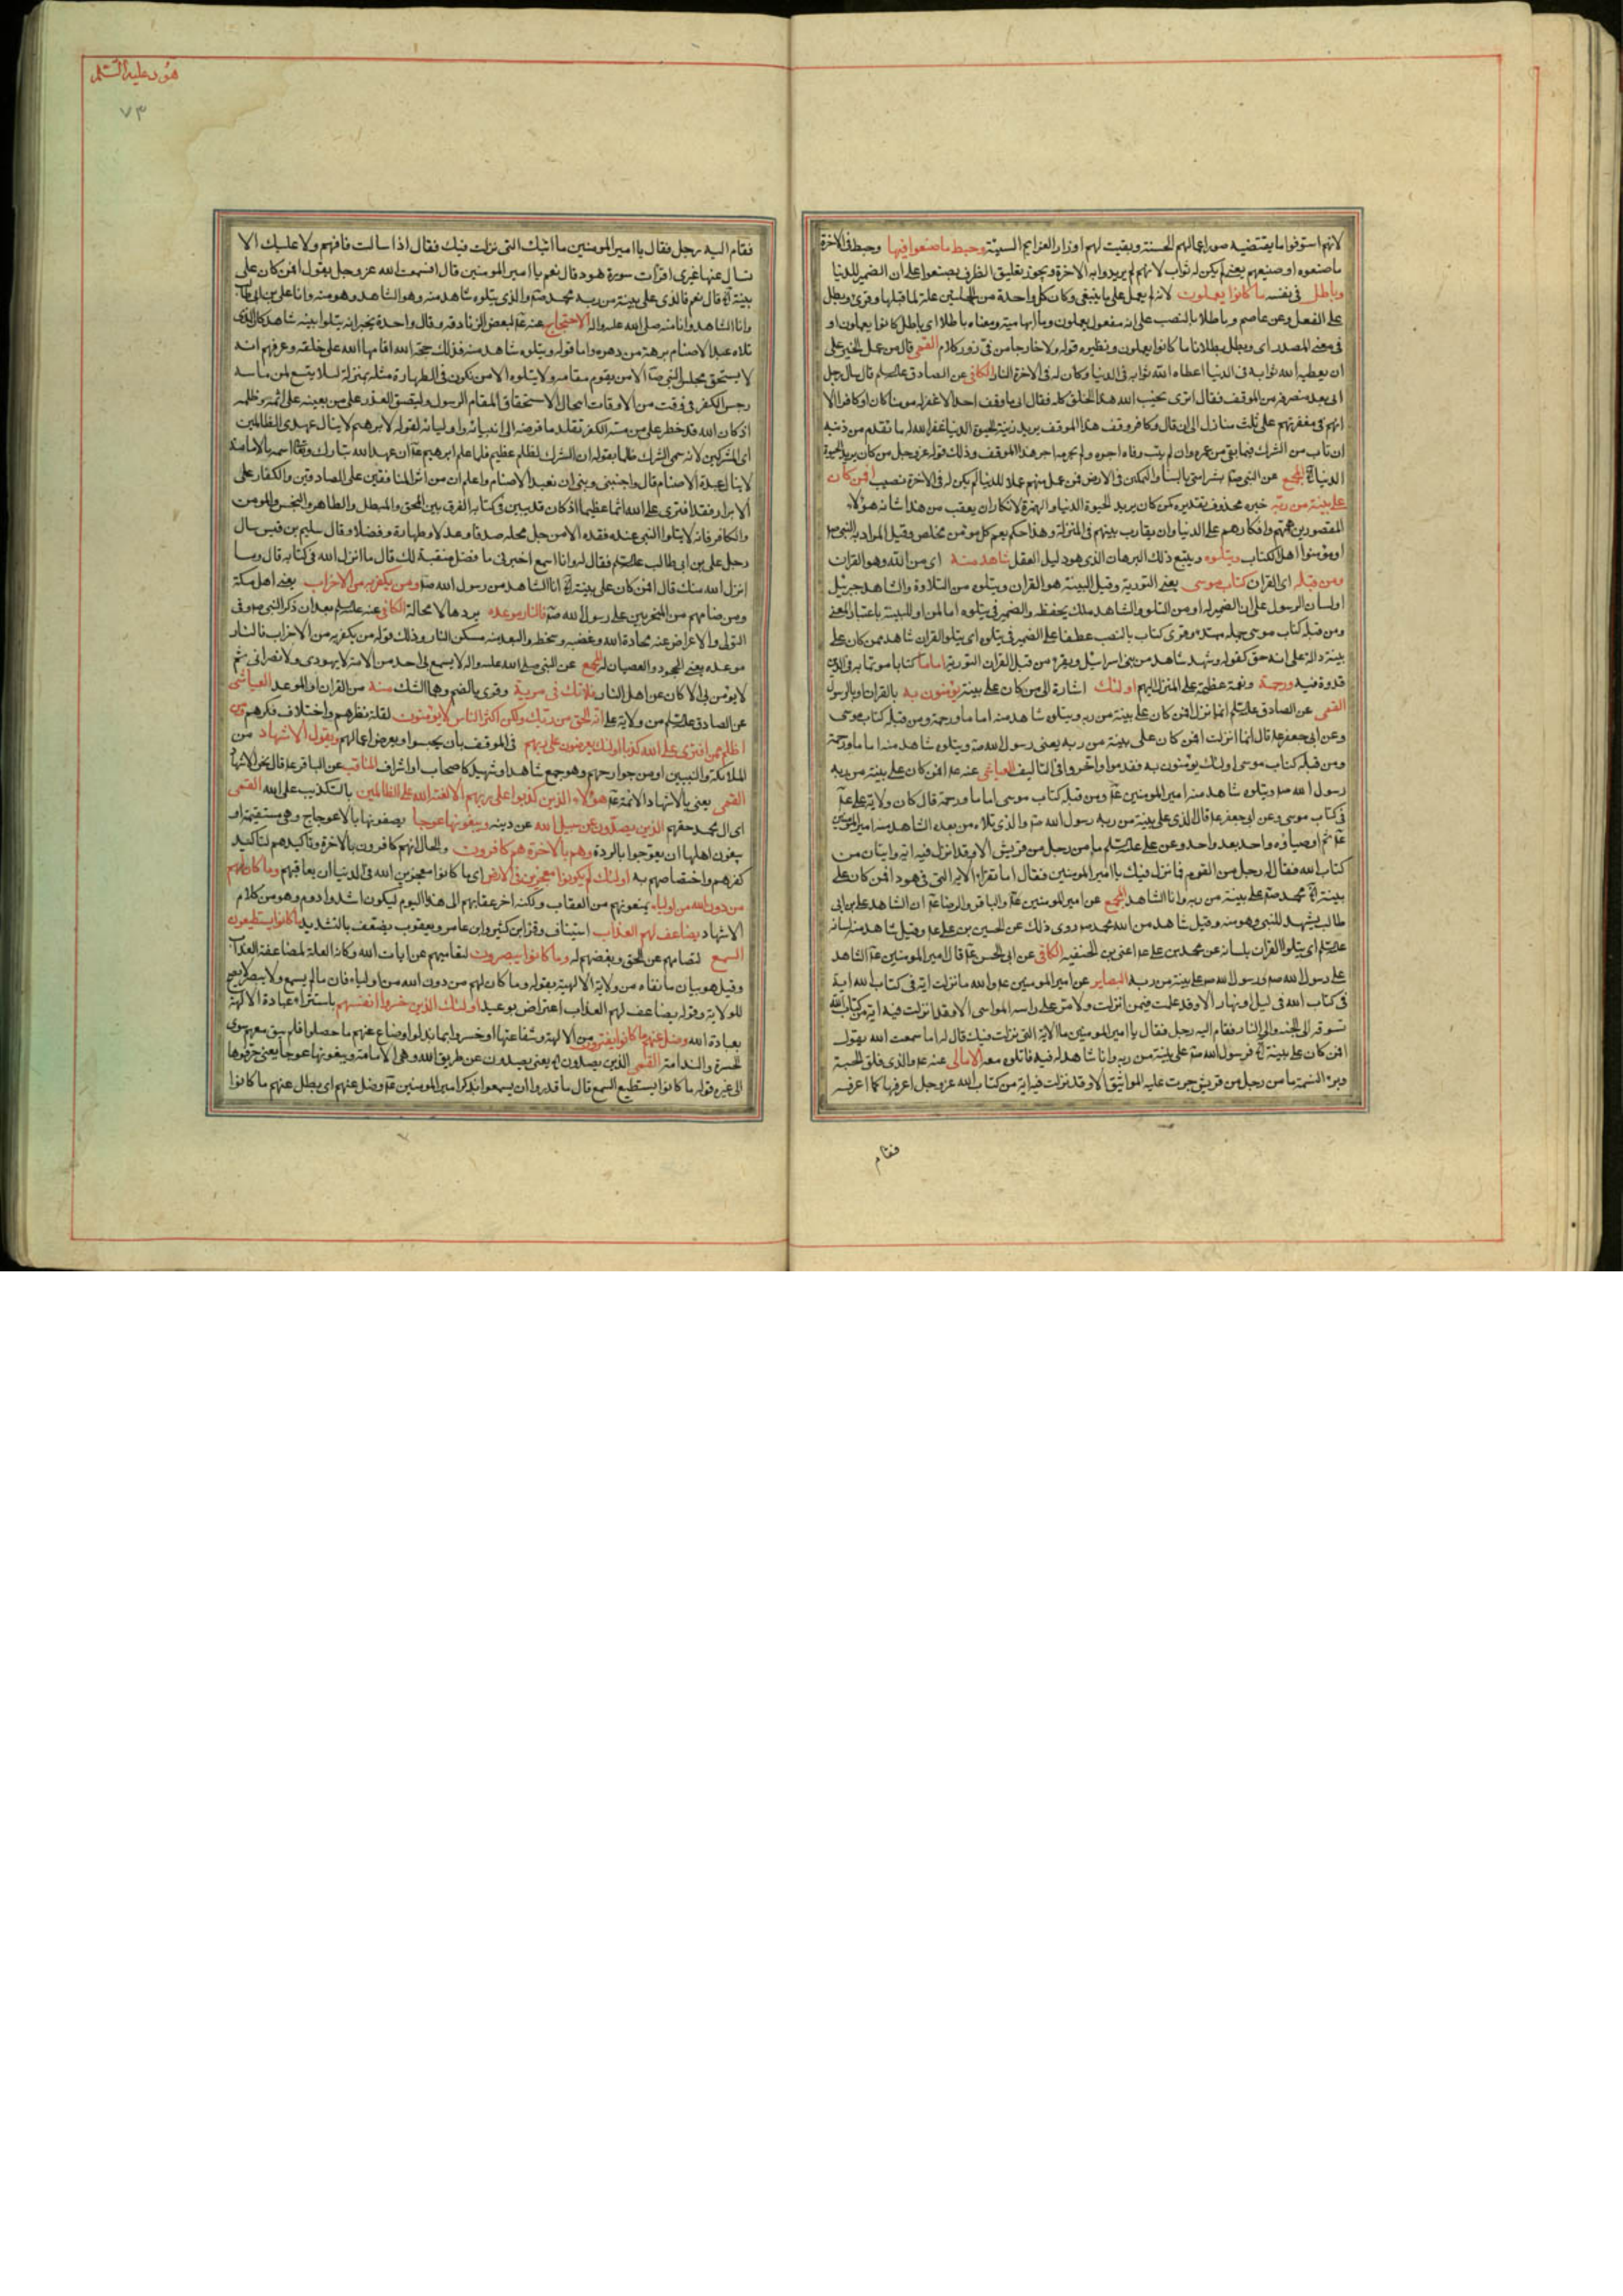 هود عليه السلم
٧٣
لانهم استوفوا ما يقتضيه صور اعمالهم الحسنة وبقيت لهم اوزار العزايم السيئة وحبط ما صنعوا فيها وحبط فى الاخرة
ما صنعوه او صنيعهم يعنى لم يكن له ثواب لانهم لم يريدوا به الاخرة ويجوز تعليق الظرف بصنعوا على ان الضمير للدنيا
وباطل فى نفسه ما كانوا يعملون لانه لم يعمل على ما ينبغى وكان كل واحدة من الجملتين علة لما قبلها وقرئ وبطل
على الفعل وعن عاصم وباطلا بالنصب على انه مفعول يعملون وما ابهامية ومعناه باطلا اى باطل كانوا يعملون او
فى معنى المصدر اى وبطل بطلانا ما كانوا يعملون ونظيره قوله ولا خارجا من فى زور كلام القمى قال من عمل الخير على
ان يعطيه الله ثوابه فى الدنيا اعطاه الله ثوابه فى الدنيا وكان له فى الاخرة النار الكافى عن الصادق عليه السلم قال سال رجل
ابى بعد منصرفه من الموقف فقال اترى يخيب الله هذا الخلق كله فقال ابى ما وقف احد الا غفر له مومنا كان او كافرا الا
انهم فى مغفرتهم على ثلث منازل الى ان قال وكافر وقف هذا الموقف يريد زينة الحيوة الدنيا غفر الله له ما تقدم من ذنبه
ان تاب من الشرك فيما بقى من عمره وان لم يتب وفاه اجره ولم يحرمه اجر هذا الموقف وذلك قوله عز وجل من كان يريد الحيوة
الدنيا الآية المجمع عن النبى ص بشر امتى بالسناء والتمكين فى الارض فمن عمل منهم عملا للدنيا لم يكن له فى الاخرة نصيب افمن كان
على بينة من ربه خبره محذوف تقديره كمن كان يريد الحيوة الدنيا والهمزة لانكار ان يعقب من هذا شانه هؤلاء
المقصورين هممهم وافكارهم على الدنيا وان يقارب بينهم فى المنزلة وهذا حكم يعم كل مومن مخلص وقيل المراد به النبى ص
او مؤمنوا اهل الكتاب ويتلوه ويتبع ذلك البرهان الذى هو دليل العقل شاهد منه اى من الله وهو القران
ومن قبله اى القران كتاب موسى يعنى التورية وقيل البينة هو القران ويتلوه من التلاوة والشاهد جبرئيل
او لسان الرسول على ان الضمير له او من التلو والشاهد ملك يحفظه والضمير فى يتلوه اما لمن او للبينة باعتبار المعنى
ومن قبله كتاب موسى جملة مبتداة وقرئ كتاب بالنصب عطفا على الضمير فى يتلوه اى يتلو القران شاهد ممن كان على
بينة دالة على انه حق كقوله وشهد شاهد من بنى اسرائيل ويقرء من قبل القران التورية اماما كتابا موتما به فى الدين
قدوة فيه ورحمة ونعمة عظيمة على المنزل اليهم اولئك اشارة الى من كان على بينة يؤمنون به بالقران او بالرسول
القمى عن الصادق عليه السلم انما نزل افمن كان على بينة من ربه ويتلوه شاهد منه اماما ورحمة ومن قبله كتاب موسى
وعن ابى جعفر ع قال انما انزلت افمن كان على بينة من ربه يعنى رسول الله ص ويتلوه شاهد منه اماما ورحمة
ومن قبله كتاب موسى اولئك يؤمنون به فقدموا واخروا فى التاليف العياشى عنه ع افمن كان على بينة من ربه
رسول الله ص ويتلوه شاهد منه امير المومنين ع ومن قبله كتاب موسى اماما ورحمة قال كان ولاية على ع
فى كتاب موسى وعن ابى جعفر ع قال الذى على بينة من ربه رسول الله ص والذى تلاه من بعده الشاهد منه امير المومنين
ع ثم اوصياؤه واحد بعد واحد وعن على عليه السلم ما من رجل من قريش الا وقد انزل فيه اية وايتان من
كتاب الله فقال له رجل من القوم فما نزل فيك يا امير المومنين فقال اما تقراء الاية التى فى هود افمن كان على
بينة الآية محمد ص على بينة من ربه وانا الشاهد المجمع عن امير المومنين ع والباقر والرضا ع ان الشاهد على بن ابى
طالب يشهد للنبى وهو منه وقيل شاهد من الله محمد ص روى ذلك عن الحسين بن على ع وقيل شاهد منه لسانه
عليه السلم اى يتلو القران بلسانه عن محمد بن على ع اعنى بن الحنفيه الكافى عن ابى الحسن ع قال امير المومنين ع الشاهد
على رسول الله ص ورسول الله ص على بينة من ربه البصاير عن امير المومنين ع والله ما نزلت اية فى كتاب الله
فى كتاب الله فى ليل او نهار الا وقد علمت فيمن انزلت ولا مر على راسه المواسى الا وقد انزلت فيه اية من كتاب الله
تسوقه الى الجنة والى النار فقام اليه رجل فقال يا امير المومنين ما الاية التى نزلت فيك قال له اما سمعت الله يقول
افمن كان على بينة الآية فرسول الله ص على بينة من ربه وانا شاهد له فيه فاتلوه معه الامالى عنه ع والذى فلق الحبة
وبرء النسمة ما من رجل من قريش جرت عليه المواثيق الا وقد نزلت فيه اية من كتاب الله عز وجل اعرفها كما اعرفه
فقام
فقام اليه رجل فقال يا امير المومنين ما ايتك التى نزلت فيك فقال اذا سالت فافهم ولا عليك الا
تسال عنها غيرى اقرات سورة هود قال نعم يا امير المومنين قال افسمعت الله عز وجل يقول افمن كان على
بينة الآية قال نعم قال فالذى على بينة من ربه محمد ص والذى يتلوه شاهد منه وهو الشاهد وهو منه وانا على بن ابى طالب
وانا الشاهد وانا منه صلى الله عليه واله الاحتجاج عنه ع لبعض الزنادقه وقال واحدة يخبر انه يتلوا بينه شاهد كان الذى
تلاه عبد الاصنام برهة من دهره واما قوله ويتلوه شاهد منه فذلك حجة الله اقامها الله على خلقه وعرفهم انه
لا يستحق مجلس النبى ص الا من يقوم مقامه ولا يتلوه الا من يكون فى الطهارة مثله بمنزلة لئلا يتسع لمن ماسه
رجس الكفر فى وقت من الاوقات انتحال الاستحقاق لمقام الرسول وليضيق العذر على من يعينه على اثمه وظلمه
اذ كان الله قد خطر على من مسه الكفر تقلد ما فوضه الى انبيائه واوليائه لقوله لابرهيم لا ينال عهدى الظالمين
اى المشركين لانه سمى الشرك ظلما بقوله ان الشرك لظلم عظيم فلما علم ابرهيم ع ان عهد الله تبارك وتعالى اسمه بالامامة
لا ينال عبدة الاصنام قال واجنبنى وبنى ان نعبد الاصنام واعلم ان من اثر المنافقين على الصادقين والكفار على
الابرار فقد افترى على الله اثما عظيما اذ كان قد بين فى كتابه الفرق بين المحق والمبطل والطاهر والنجس والمومن
والكافر فانه لا يتلوا النبى عند فقده الا من حل محله صدقا وعدلا وطهارة وفضلا وقال سليم بن قيس سال
رجل على بن ابى طالب عليه السلم فقال له وانا اسمع اخبرنى ما فضل منقبة لك قال ما انزل الله فى كتابه قال وما
انزل الله منك قال افمن كان على بينة الآية انا الشاهد من رسول الله ص ومن يكفر به من الاحزاب يعنى اهل مكة
ومن ضامهم من المتحزبين على رسول الله ص فالنار موعده يردها لا محالة الكافى عنه عليه السلم بعد ان ذكر النبى ص وفى
التولى والاعراض عنه محادة الله وغضبه وسخطه والبعد منه مسكن النار وذلك قوله من يكفر به من الاحزاب فالنار
موعده يعنى الجحود والعصيان له المجمع عن النبى صلى الله عليه واله لا يسمع بى احد من الامة لا يهودى ولا نصرانى ثم
لا يومن بى الا كان من اهل النار فلا تك فى مرية وقرئ بالضم وهما الشك منه من القران او الموعد العياشى
عن الصادق عليه السلم من ولاية على انه الحق من ربك ولكن اكثر الناس لا يؤمنون لقلة نظرهم واختلاف فكرهم ومن
اظلم ممن افترى على الله كذبا اولئك يعرضون على ربهم فى الموقف بان يحبسوا ويعرض اعمالهم ويقول الاشهاد من
الملائكة والنبيين او من جوارحهم وهو جمع شاهد او شهيد كاصحاب او اشراف المناقب عن الباقر ع قال نحن الاشهاد
القمى يعنى بالاشهاد الائمة ع هؤلاء الذين كذبوا على ربهم الا لعنة الله على الظالمين بالتكذيب على الله القمى
اى ال محمد حقهم الذين يصدون عن سبيل الله عن دينه ويبغونها عوجا يصفونها بالاعوجاج وهى مستقيمة او
يبغون اهلها ان يعوجوا بالردة وهم بالاخرة هم كافرون والحال انهم كافرون بالاخرة وتاكيدهم لتاكيد
كفرهم واختصاصهم به اولئك لم يكونوا معجزين فى الارض اى ما كانوا معجزين الله فى الدنيا ان يعاقبهم وما كان لهم
من دون الله من اولياء يمنعونهم من العقاب ولكنه اخر عقابهم الى هذا اليوم ليكون اشد وادوم وهو من كلام
الاشهاد يضاعف لهم العذاب استيناف وقرا ابن كثير وابن عامر ويعقوب يضعف بالتشديد ما كانوا يستطيعون
السمع لتصامهم عن الحق وبغضهم له وما كانوا يبصرون لتعاميهم عن ايات الله وكانه العلة لمضاعفة العذاب
وقيل هو بيان ما نفاه من ولاية الالهة بقوله وما كان لهم من دون الله من اولياء فان ما لم يسمع ولا يبصر لا يصلح
للولاية وقوله يضاعف لهم العذاب اعتراض بوعيد اولئك الذين خسروا انفسهم باشتراء عبادة الالهة
بعبادة الله وضل عنهم ما كانوا يفترون من الالهة وشفاعتها او خسروا بما بدلوا وضاع عنهم ما حصلوا فلم يبق معهم سوى
الحسرة والندامة القمى الذين يصدون الآية يعنى يصدون عن طريق الله وهى الامامة ويبغونها عوجا يعنى حرفوها
الى غيره قوله ما كانوا يستطيع السمع قال ما قدروا ان يسمعوا بذكر امير المومنين ع وضل عنهم اى بطل عنهم ما كانوا